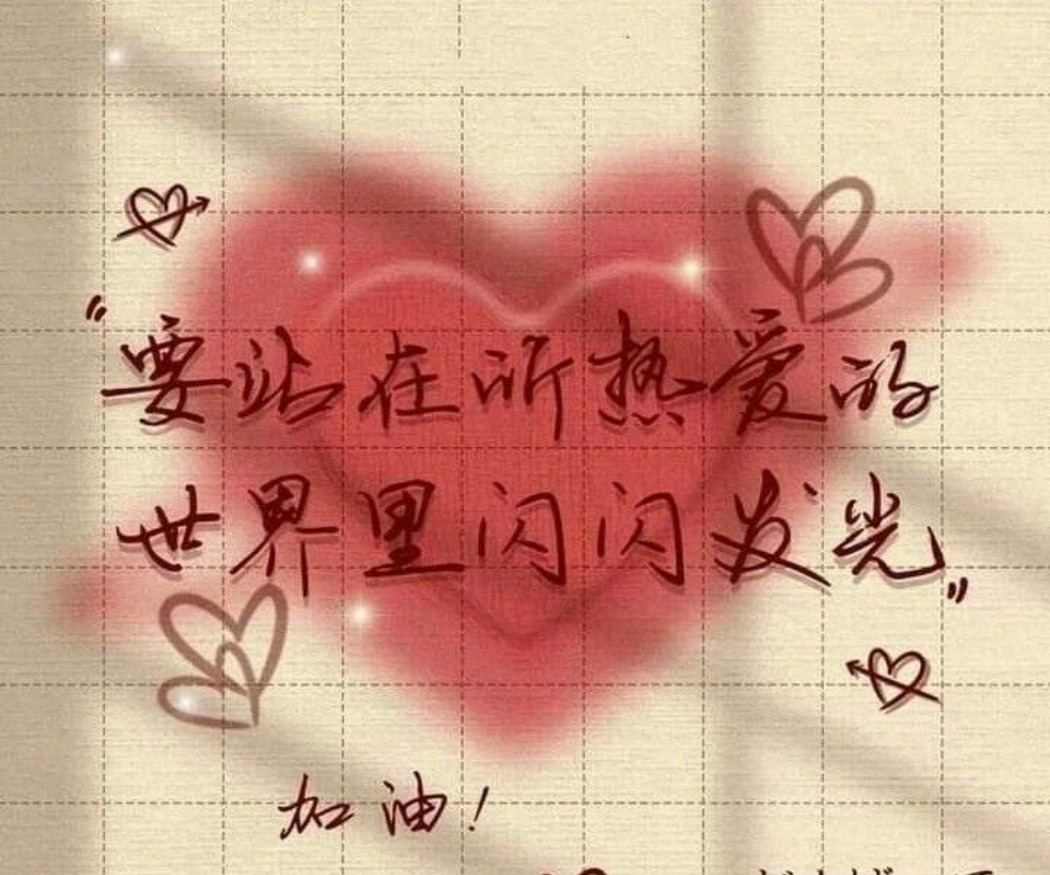 “要站在所热爱的
世界里闪闪发光”
加油！